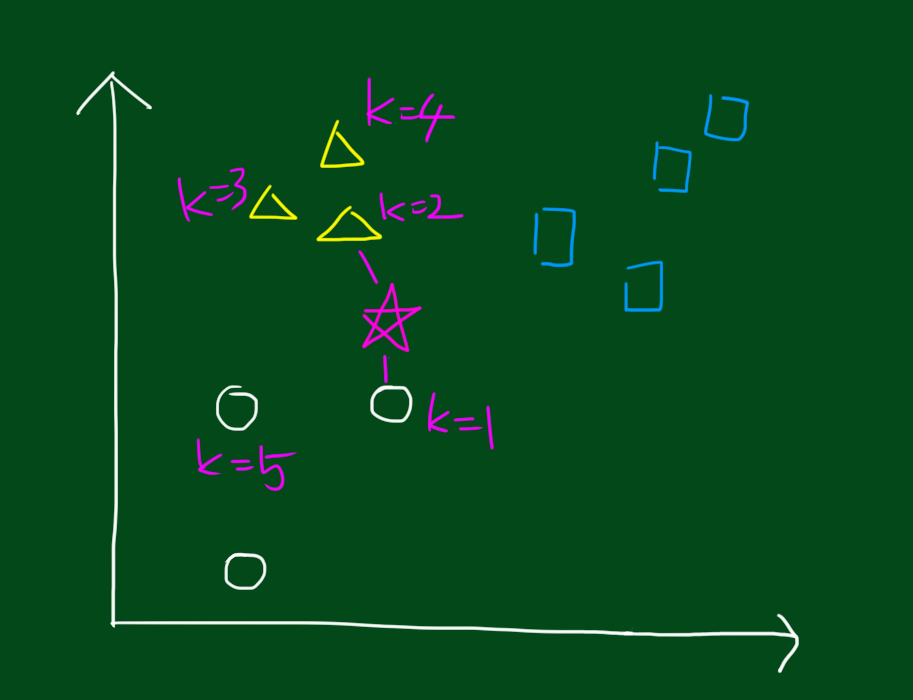 k=4
k=3
k=2
k=1
k=5